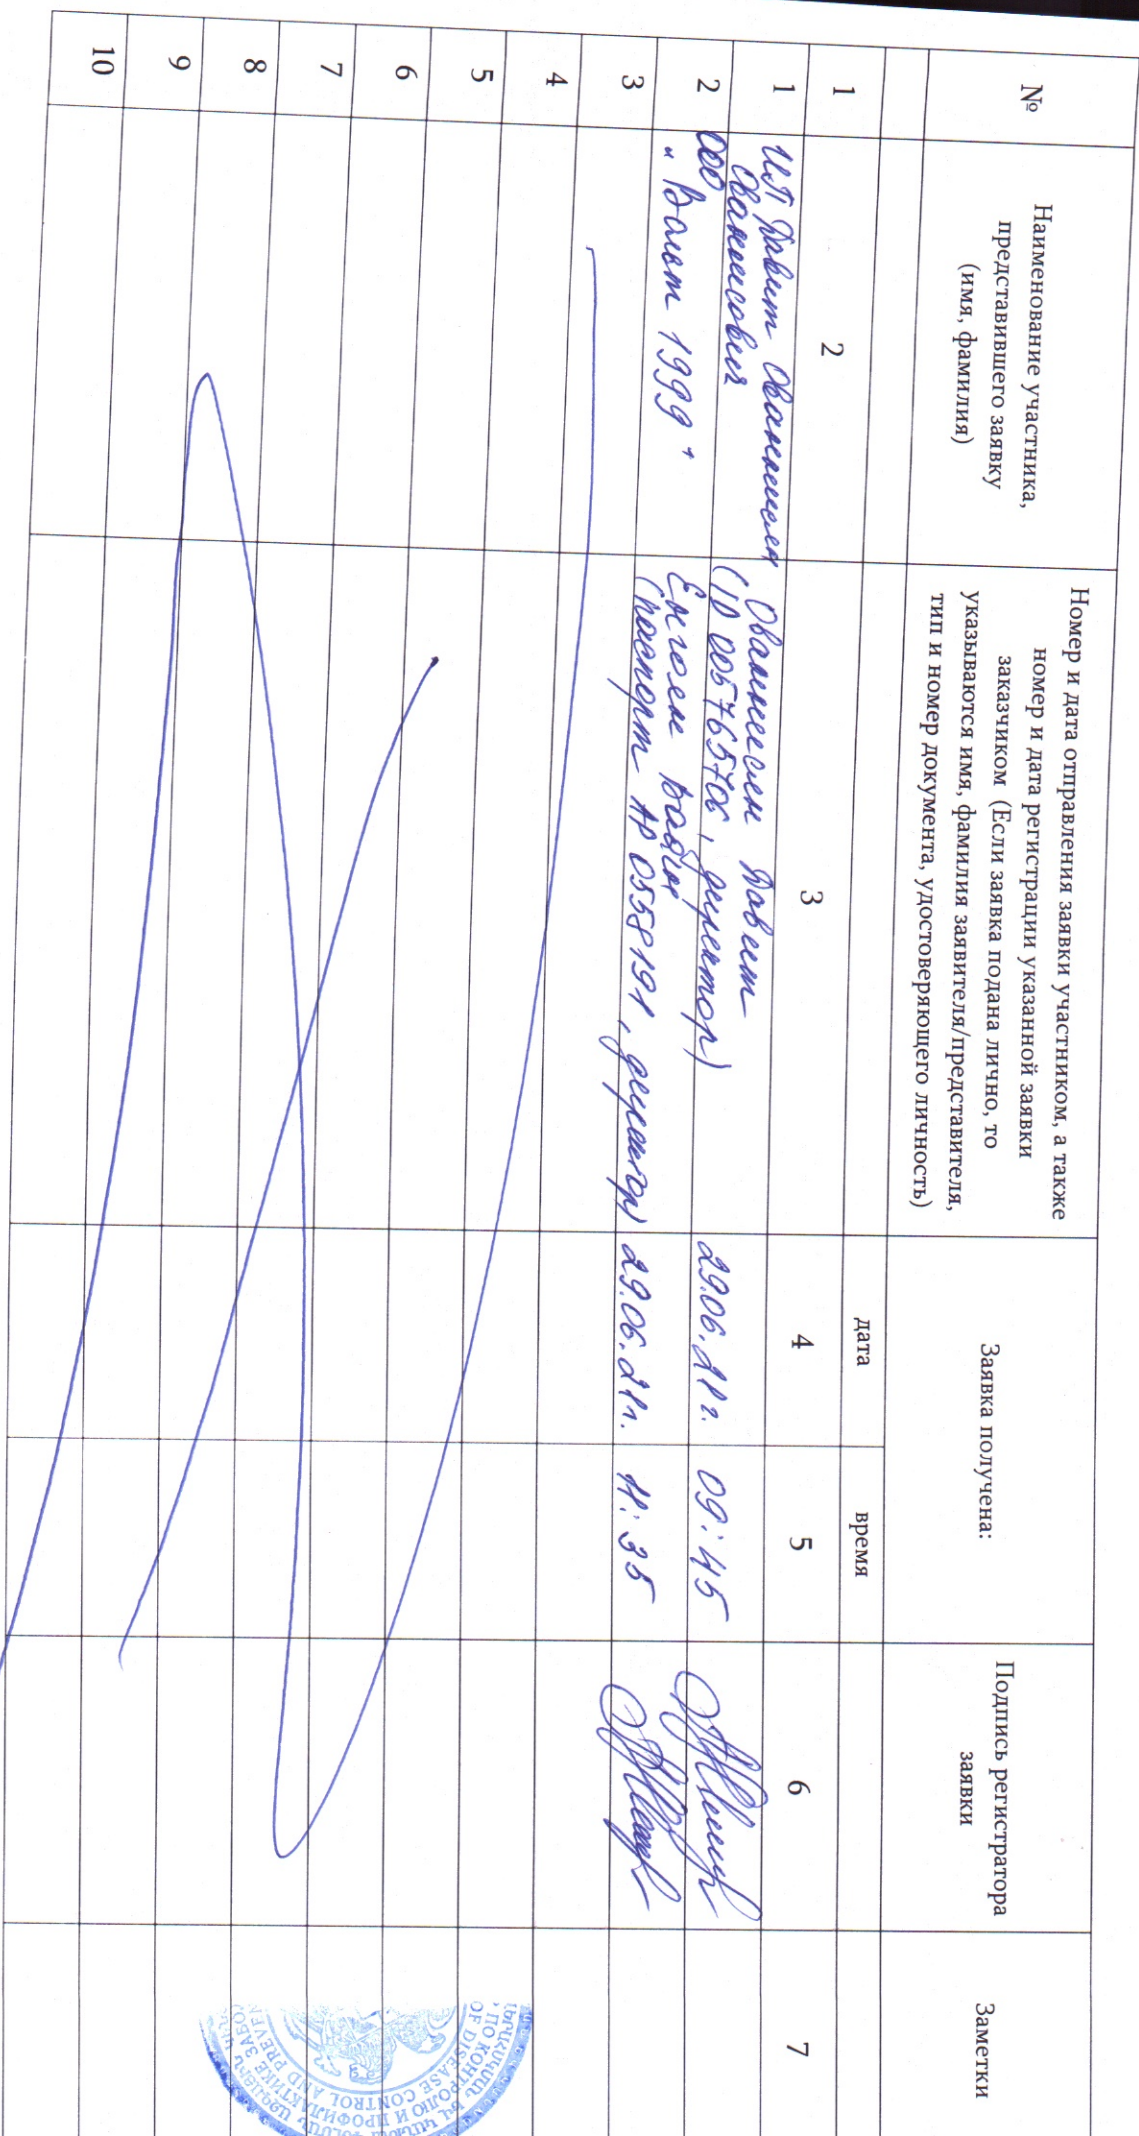 №
Наименование участника,
представившего заявку
(имя, фамилия)
Номер и дата отправления заявки участником, а также
номер и дата регистрации указанной заявки
заказчиком (Если заявка подана лично, то
указываются имя, фамилия заявителя/представителя,
тип и номер документа, удостоверяющего личность)
Заявка получена:
дата
время
Подпись регистратора
заявки
Заметки
1
2
3
4
5
6
7
1
ИП Давит Ованнисян
Ованисович
Ованнесиян Давит
(ID 005765706, директор)
29.06.21г.
09:45
2
ООО
"Вальт 1999"
Енгоян Вадим
(паспорт AP 0558191, директор)
29.06.21г.
11:35
3
4
5
6
7
8
9
10
ПО КОНТРОЛЮ И ПРОФИЛАКТИКЕ ЗАБО
OF DISEASE CONTROL AND PREVEN